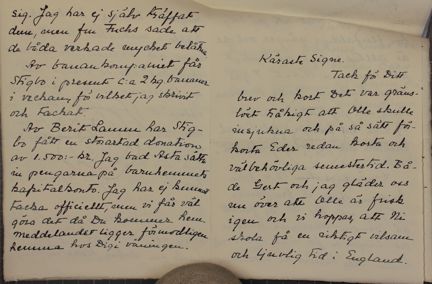 sig. Jag har ej själv träffat
dem, men fru Fuchs sade att
de båda verkade mycket
Av banankompaniet får
Stigbo i present c:a 2 kg. bananer
i veckan, för vilket jag skrivit
och tackat.
Av Berit Lamm har Stig-
bo fått en storartad donation
av 1.500:- kr. Jag bad Asta sätta
in pengarna på barnhemmets
kapitalkonto. Jag har ej kunnat
tacka officiellt, men vi får väl
göra det då Du kommer hem.
meddelandet ligger förmodligen
hemma hos Digi våningen.
Käraste Signe.
Tack för Ditt
brev och kort Det var gräns-
löst tråkigt att Olle skulle
insjukna och på så sätt för-
korta Eder redan korta och
välbehövliga semestertid. Bå-
de Gert och jag gläder oss
nu över att Olle är frisk
igen och vi hoppas att Ni
skola få en riktigt vilsam
och ljuvlig tid i England.